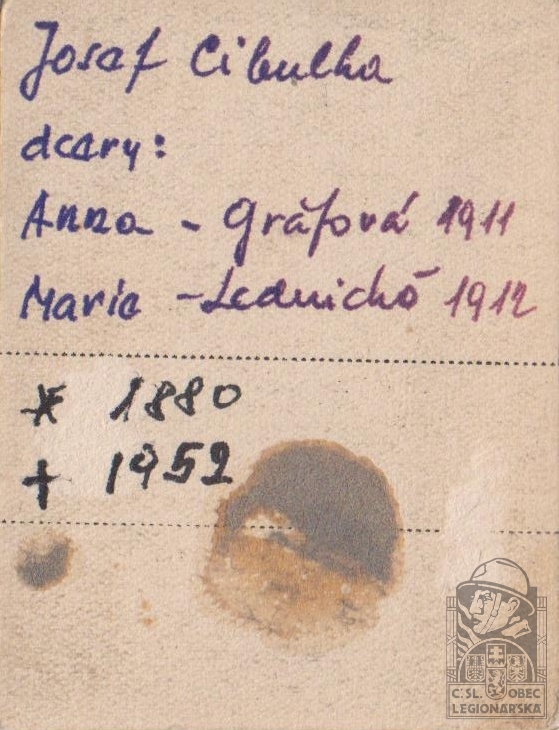 Josef Cibulka
dcery:
Anna - Gräfová 1911
Marie - Lednická 1912
* 1880
+ 1952
Č.SL. OBEC
LEGIONÁŘSKÁ